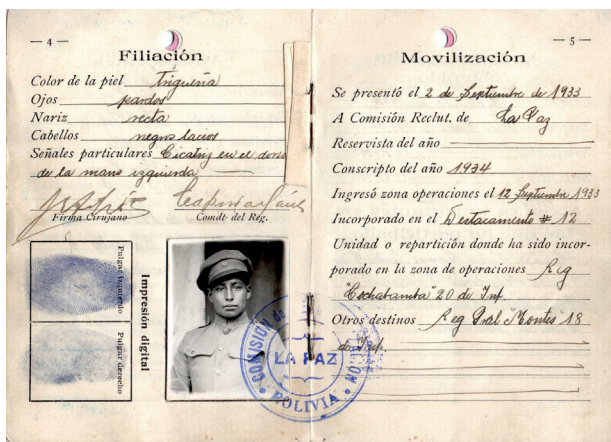 — 4 —
Filiación
Color de la piel trigueña
Ojos pardos
Nariz recta
Cabellos negros lacios
Señales particulares Cicatriz en el dorso
de la mano izquierda
Firma Cirujano
Comdt. del Reg.
Pulgar izquierdo
Pulgar derecho
Impresión digital
— 5 —
Movilización
Se presentó el 2 de Septiembre de 1933
A Comisión Reclut. de La Paz
Reservista del año
Conscripto del año 1934
Ingresó zona operaciones el 12 Septiembre 1933
Incorporado en el Destacamento # 12
Unidad o repartición donde ha sido incor-
porado en la zona de operaciones Reg
"Cochabamba" 20 de Inf.
Otros destinos Reg Gral "Montes" 18
de Inf.
COMISION de
LA PAZ
BOLIVIA